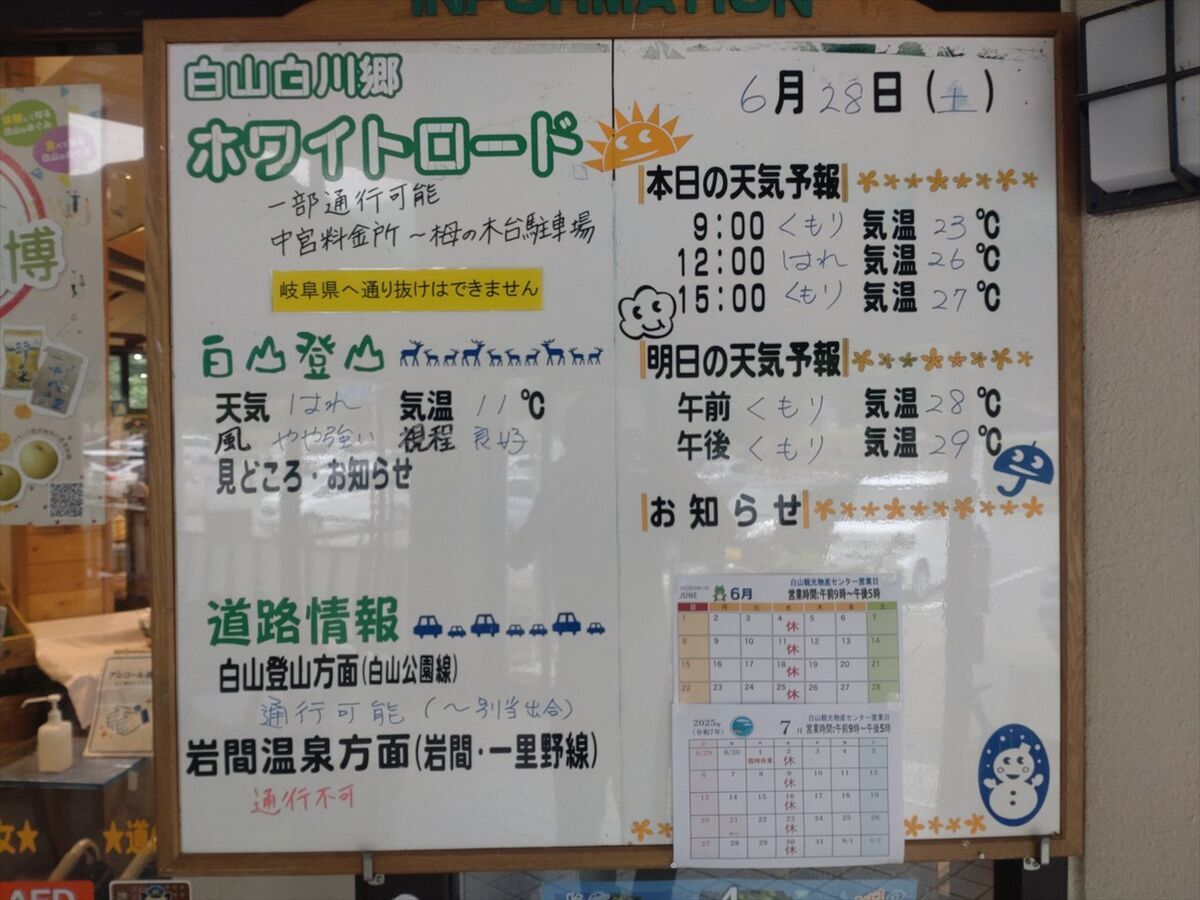 INFORMATION
白山白川郷
ホワイトロード
一部通行可能
中宮料金所～栂の木台駐車場
岐阜県へ通り抜けはできません
白山登山
天気 はれ 気温 11℃
風 やや強い 視程 良好
見どころ・お知らせ
道路情報
白山登山方面(白山公園線)
通行可能 (～別当出合)
岩間温泉方面(岩間・一里野線)
通行不可
6月28日(土)
本日の天気予報
9:00 くもり 気温 23℃
12:00 はれ 気温 26℃
15:00 くもり 気温 27℃
明日の天気予報
午前 くもり 気温 28℃
午後 くもり 気温 29℃
お知らせ
白山観光物産センター営業日
JUNE 6月 営業時間:午前9時～午後5時
日 月 火 水 木 金 土
1 2 3 4 5 6 7
休
8 9 10 11 12 13 14
休
15 16 17 18 19 20 21
休
22 23 24 25 26 27 28
休
2025年 白山観光物産センター営業日
(令和7年) 7月 営業時間:午前9時～午後5時
6/29 6/30 1 2 3 4 5
臨時休業 休
6 7 8 9 10 11 12
休
13 14 15 16 17 18 19
休
20 21 22 23 24 25 26
休
27 28 29 30 31 8/1 8/2
休
博
AED